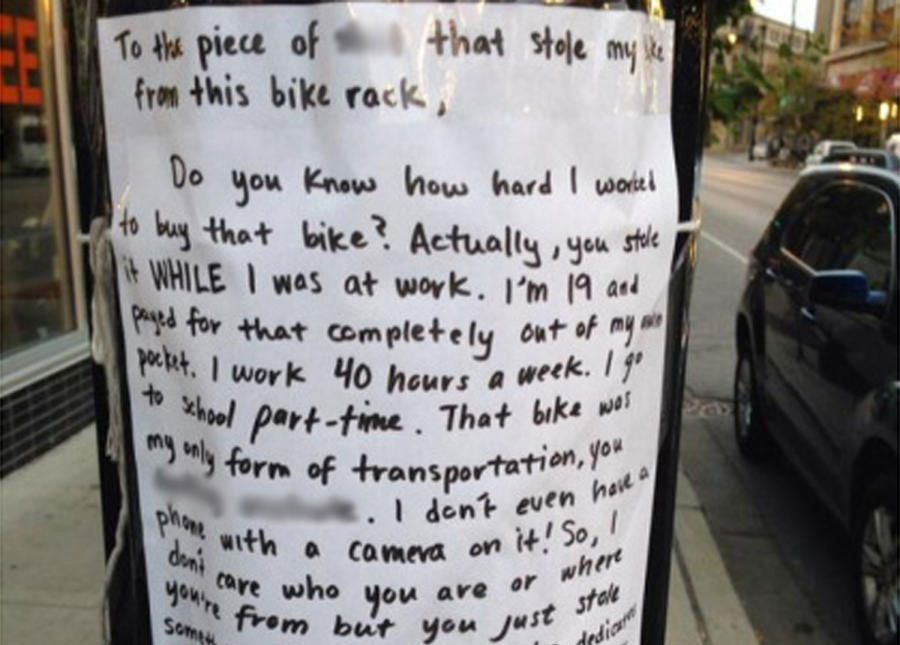 To the piece of that stole my
from this bike rack,
Do you know how hard I worked
to buy that bike? Actually, you stole
it WHILE I was at work. I'm 19 and
payed for that completely out of my own
pocket. I work 40 hours a week. I go
to school part-time. That bike was
my only form of transportation, you
. I don't even have a
phone with a camera on it! So, I
don't care who you are or where
you're from but you just stole